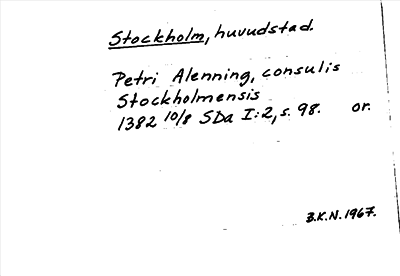 Stockholm, huvudstad.
Petri Alenning, consulis
Stockholmensis
1382 10/8 SDa I:2, s. 98. or.
B.K.N. 1967.